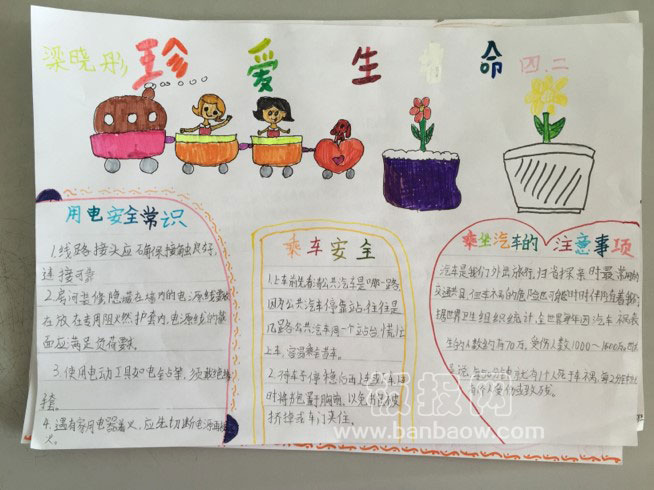 梁晓彤 珍爱生命 四.二
用电安全常识
1.线路接头应确保接触良好,
连接可靠
2.房间装修,隐蔽在墙内的电源线要
在放在专用阻燃护套内,电源线的截
面应满足负荷要求.
3.使用电动工具如电钻等,须戴绝缘
手套.
4.遇有家用电器着火,应先切断电源再救
火.
乘车安全
1.上车前先看清公共汽车是哪一路,
因为公共汽车停靠站,往往是
几路公共汽车同一个站台,慌忙
上车,容易乘错车.
2.待车子停稳后再上车或下车,上车
时将书包置于胸前,以免书包被
挤掉或车门夹住.
乘坐汽车的注意事项
汽车是我们外出旅行,扫亲时最常用的
交通
据世界卫生组织统计,全世界每年因汽车
生的人数约有70万,受伤人数1000～
板报网
www.banbaow.com